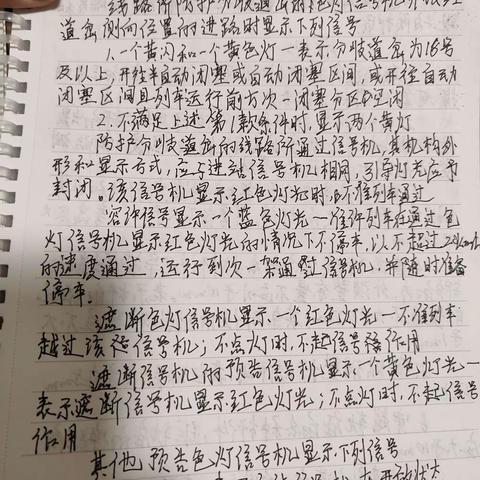 线路所防护分歧道岔的色灯信号机开放经
道岔侧向位置的进路时显示下列信号
1.一个黄闪和一个黄色灯一表示分歧道岔为18号
及以上,开往半自动闭塞或自动闭塞区间,或开往自动
闭塞区间且列车运行前方次一闭塞分区空闲
2.不满足上述第1款条件时,显示两个黄灯
防护分歧道岔的线路所通过信号机,其机构外
形和显示方式,应与进站信号机相同,引导灯光应予
封闭。该信号机显示红色灯光时,不准列车通过
容许信号显示一个蓝色灯光一准许列车在通过色
灯信号机显示红色灯光的情况下不停车,以不超过20km/h
的速度通过,运行到次一架通过信号机,并随时准备
停车。
遮断色灯信号机显示一个红色灯光一不准列车
越过该信号机;不点灯时,不起信号作用
遮断信号机的预告信号机显示一个黄色灯光一
表示遮断信号机显示红色灯光;不点灯时,不起信号
作用
其他预告色灯信号机显示下列信号